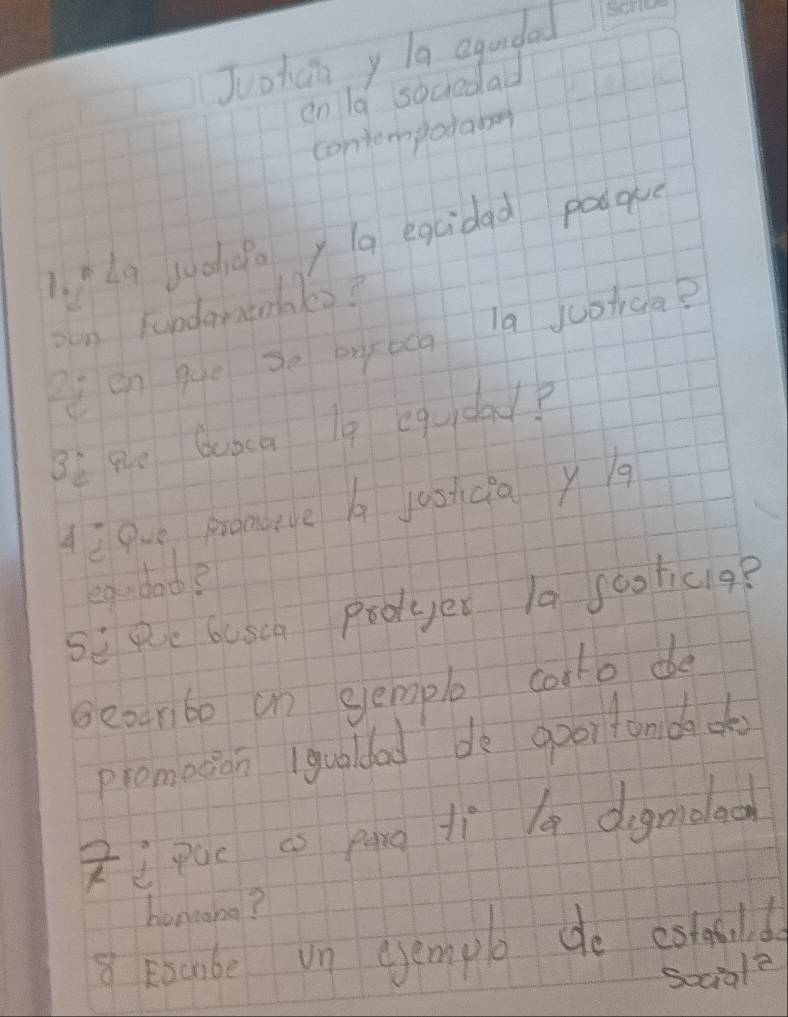 scribe
Justicia y la equidad
en la sociedad
contemporanea
1.¿La justicia y la equidad porque
son fundamentales?
2¿ en que se enfoca la justicia?
3¿ que busca la equidad?
4¿Que promueve la justicia y la
equidad?
5¿ Que busca proteger la justicia?
6 escribe un ejemplo corto de
promoción igualdad de oportunidades
7 ¿Que es para ti la dignidad
humana?
8 Escribe un ejemplo de estabilid
social?